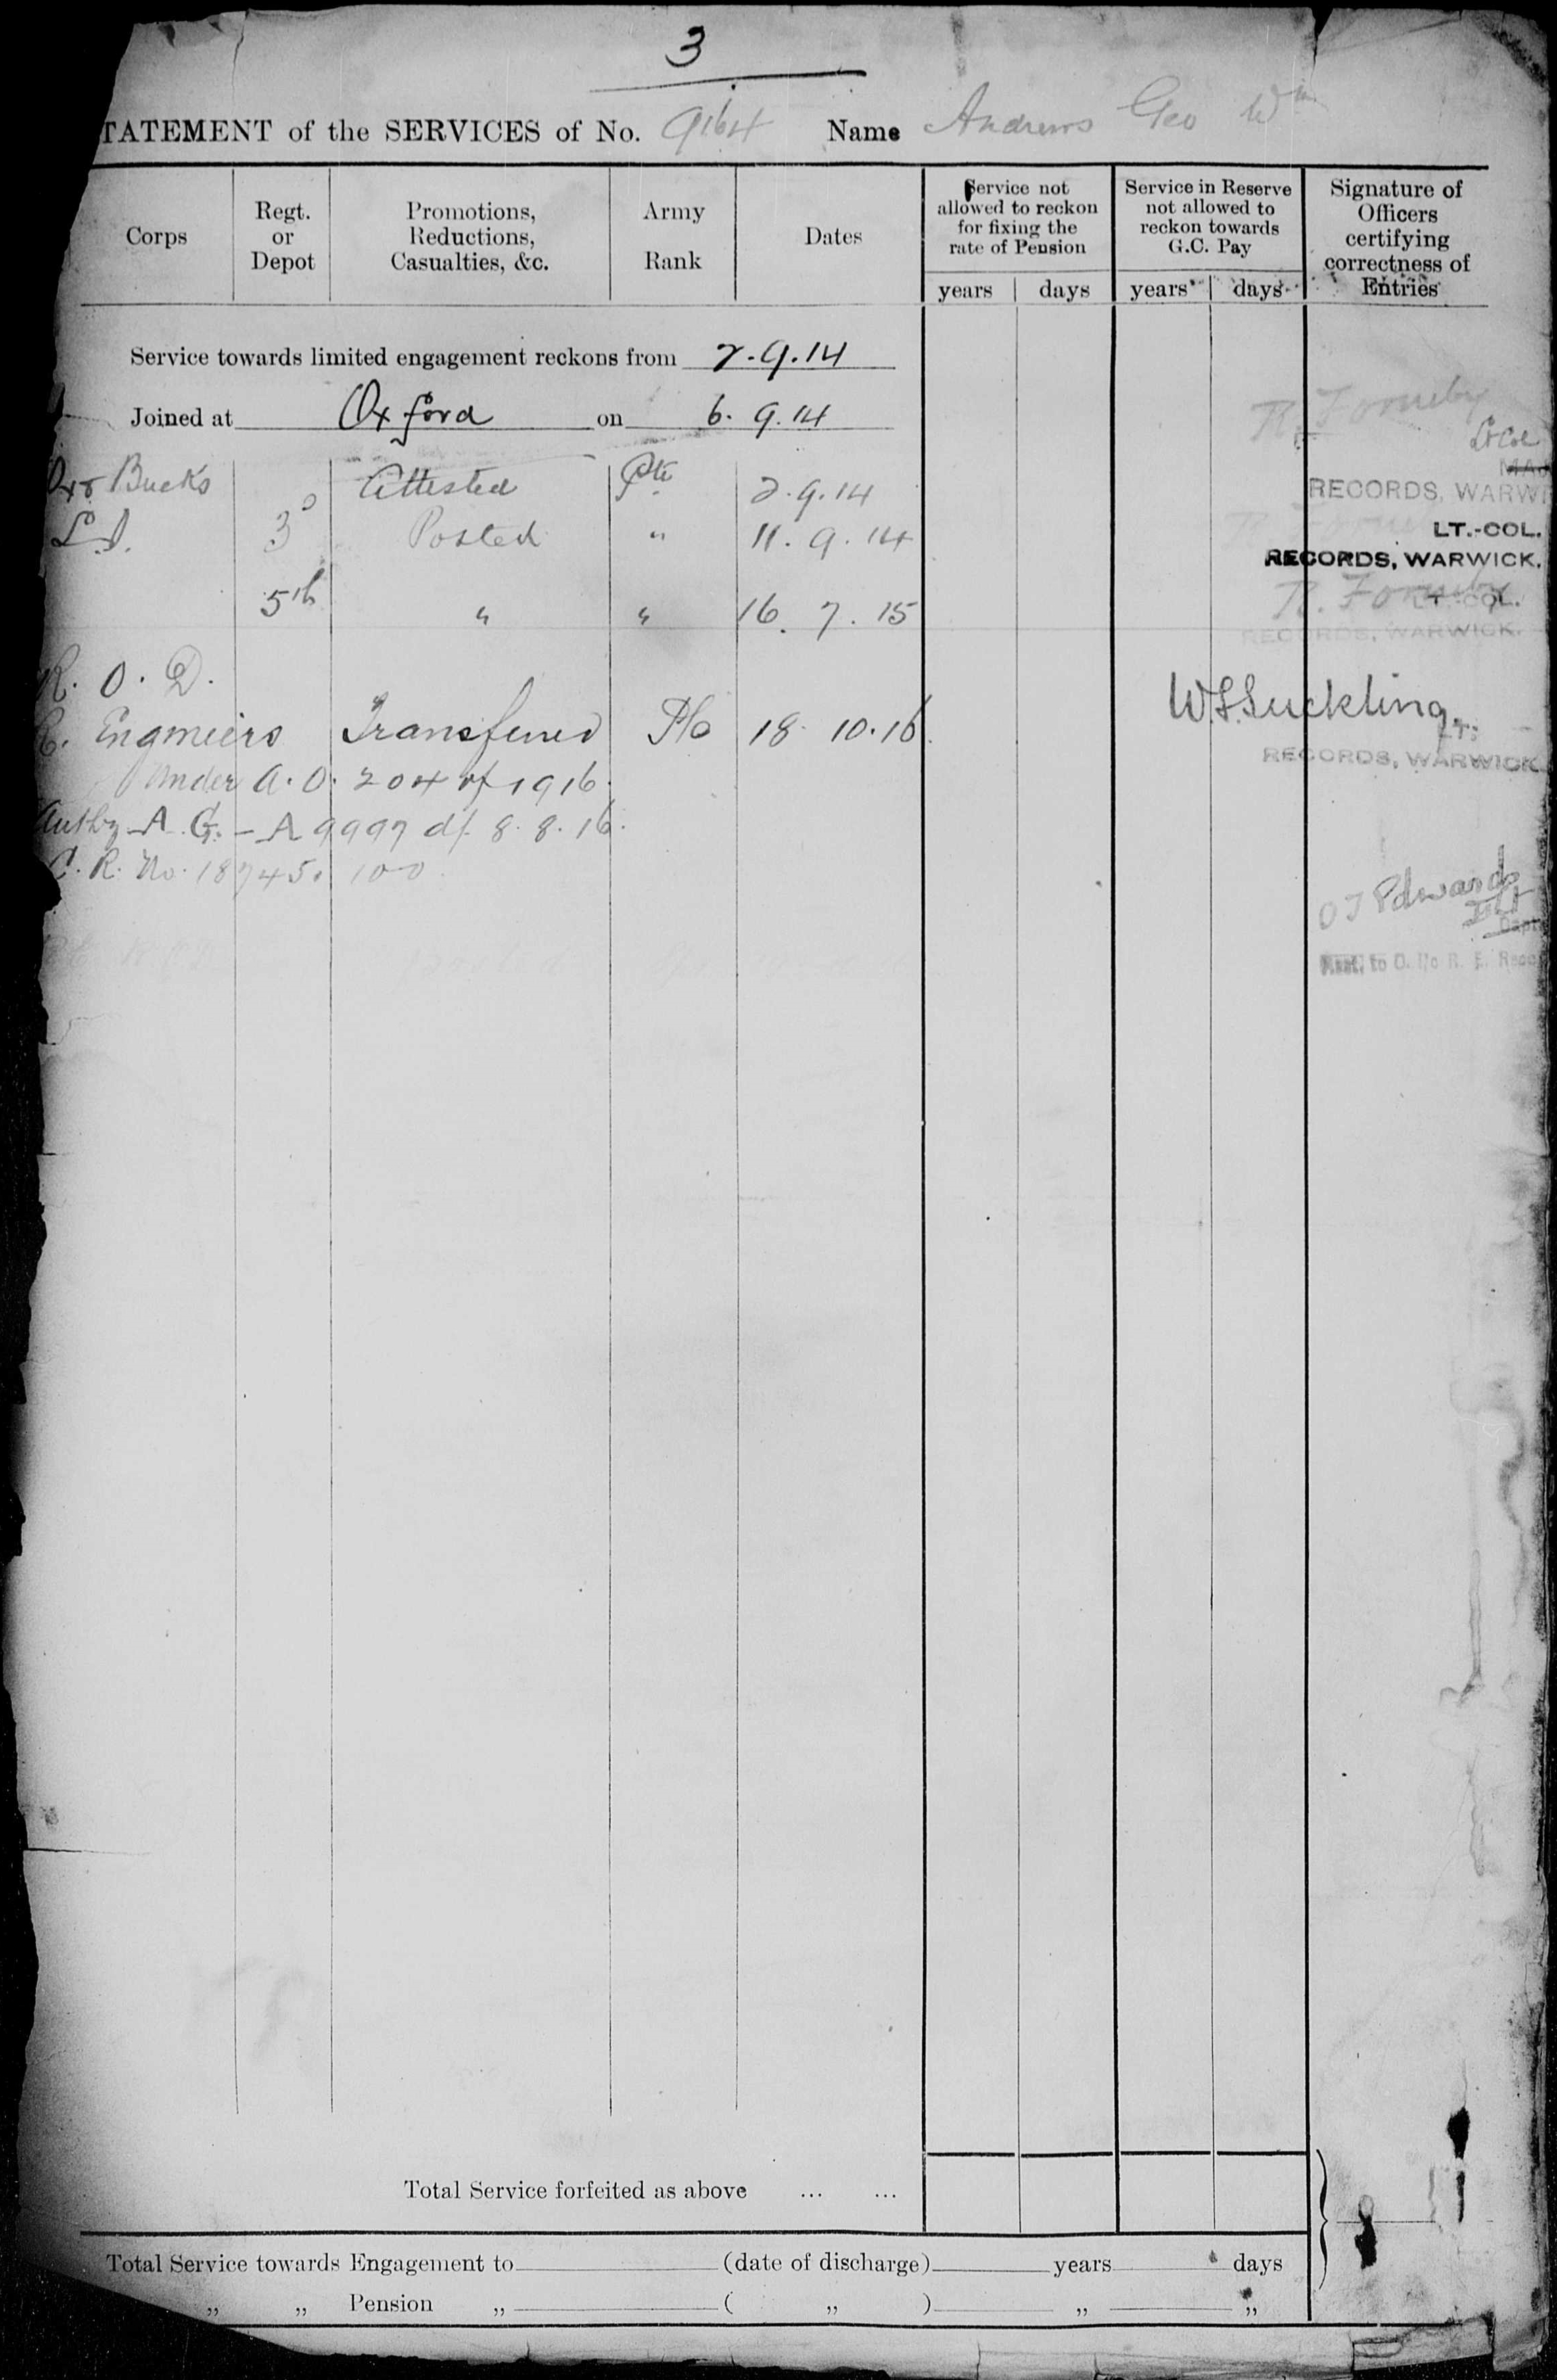 3
TATEMENT of the SERVICES of No. 9164 Name Andrews Geo Wm
Corps
Regt. or Depot
Promotions, Reductions, Casualties, &c.
Army Rank
Dates
Service not allowed to reckon for fixing the rate of Pension
Service in Reserve not allowed to reckon towards G.C. Pay
Signature of Officers certifying correctness of Entries
years days years days
Service towards limited engagement reckons from 2.9.14
Joined at Oxford on 6.9.14
R. Formby
Lt Col
Ox & Bucks Attested Pte 2.9.14
RECORDS, WARWI
L.I. 3 Posted " 11.9.14
LT.-COL.
RECORDS, WARWICK.
5th " " 16.7.15
R. Formby
LT.-COL.
RECORDS, WARWICK.
R.O.D.
R. Engineers Transferred Pte 18.10.16
W.S. Suckling.
LT.
RECORDS, WARWICK
Under A.O. 204 of 1916.
Authy A.G. - A 9997 d/ 8.8.16.
C.R. No. 18745. 100
O J Edwards
Capt
Asst. to O. i/c R. E. Reco
posted
Total Service forfeited as above ... ...
Total Service towards Engagement to (date of discharge) years days
„ „ Pension „ ( „ ) „ „